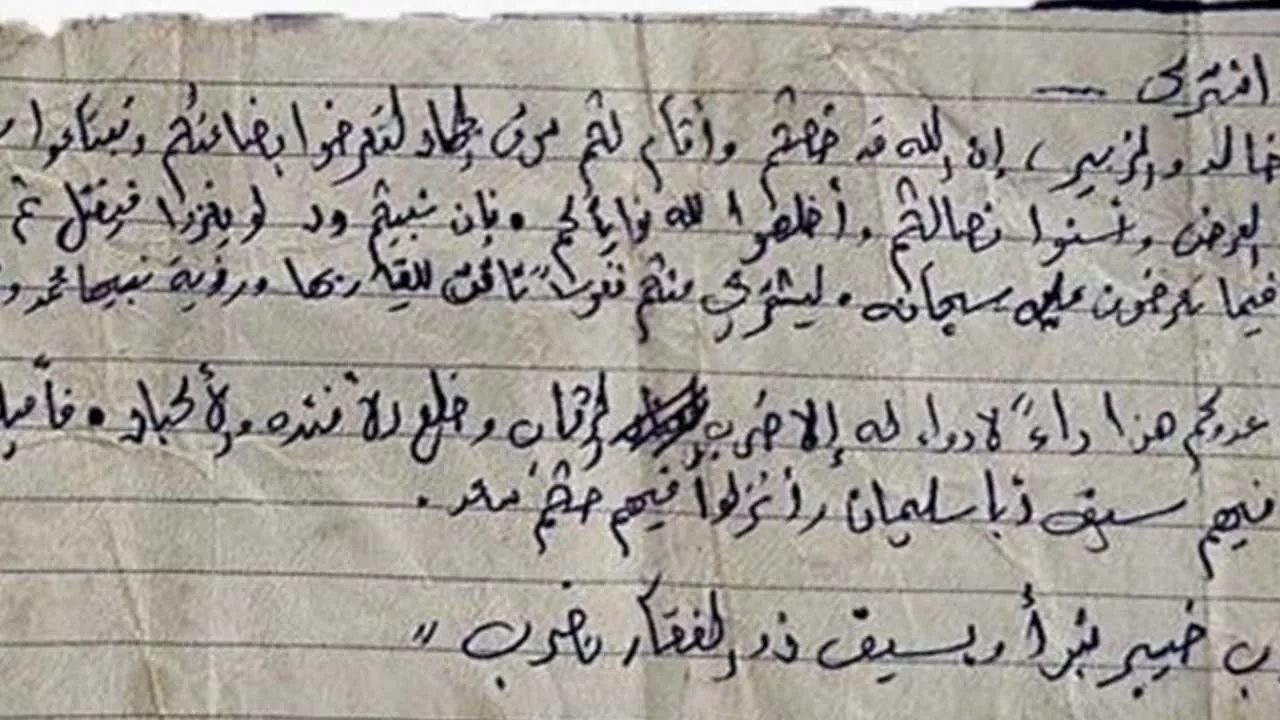 اشترى —
خالد والزبير، إن الله قد خصكم وأقام لكم سوق جهاد لتعرضوا بضاعتكم وتبتاعوا
العرض وتسنوا نصالكم. أخلصوا لله نواياكم. فإن نبيكم ود لو يغزوا فيقتل ثم
فيما تعرضون عليه سبحانه. ليشتري منكم نفوساً تاقت للقاء ربها ورؤية نبيها محمد
عدوكم هذا داءً لا دواء له إلا ضرب الرقاب وخلع الأفئدة والأكباد.
فيهم سيف أبا سليمان وأنزلوا فيهم حكم سعد.
خيبر نبرأ وبسيف ذو الفقار نضرب"